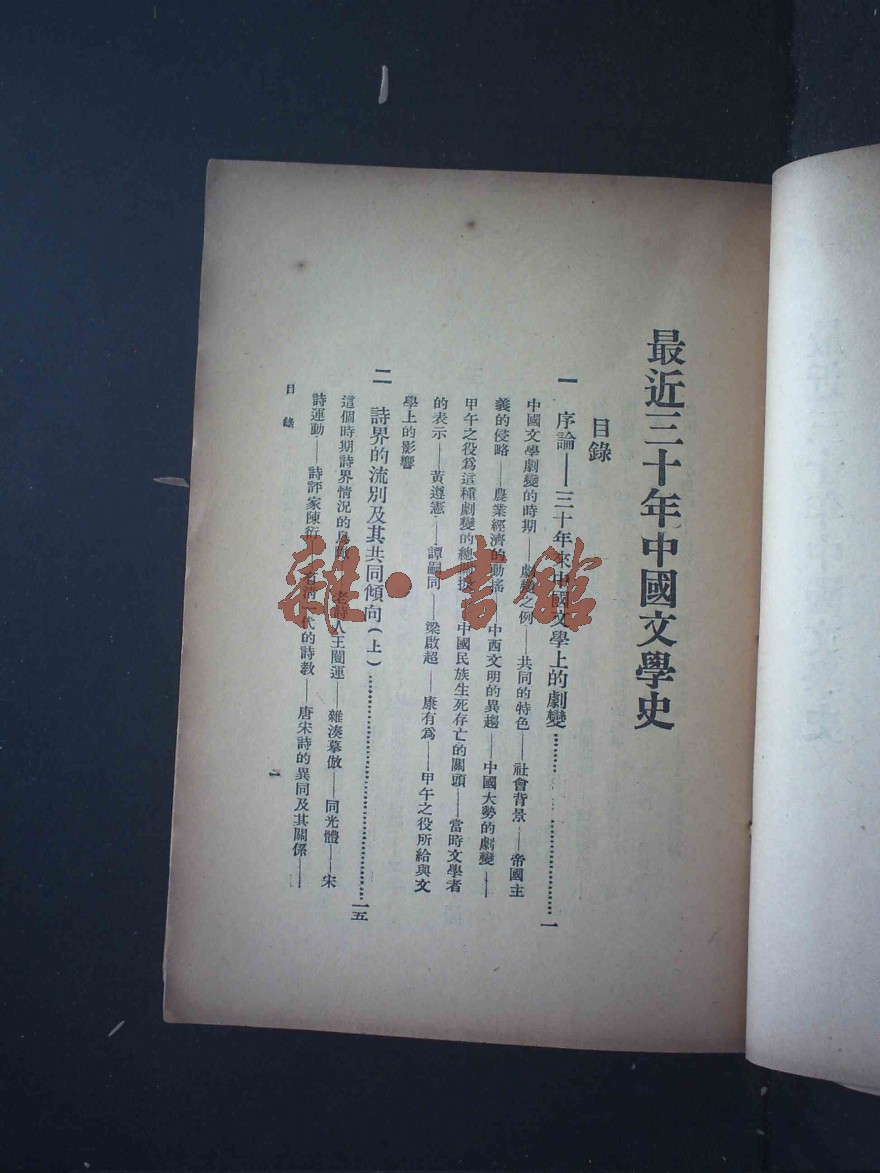 最近三十年中國文學史
目錄
一 序論——三十年來中國文學上的劇變………………一
中國文學劇變的時期——劇變之例——共同的特色——社會背景——帝國主
義的侵略——農業經濟的動搖——中西文明的異趨——中國大勢的劇變——
甲午之役爲這種劇變的總 中國民族生死存亡的關頭——當時文學者
的表示——黃遵憲——譚嗣同——梁啟超——康有爲——甲午之役所給與文
學上的影響
二 詩界的流別及其共同傾向（上）………………一五
這個時期詩界情況的鳥瞰——老詩人王闓運——雜湊摹倣——同光體——宋
詩運動——詩評家陳衍 代的詩教——唐宋詩的異同及其關係——
目錄
一
雜·書館